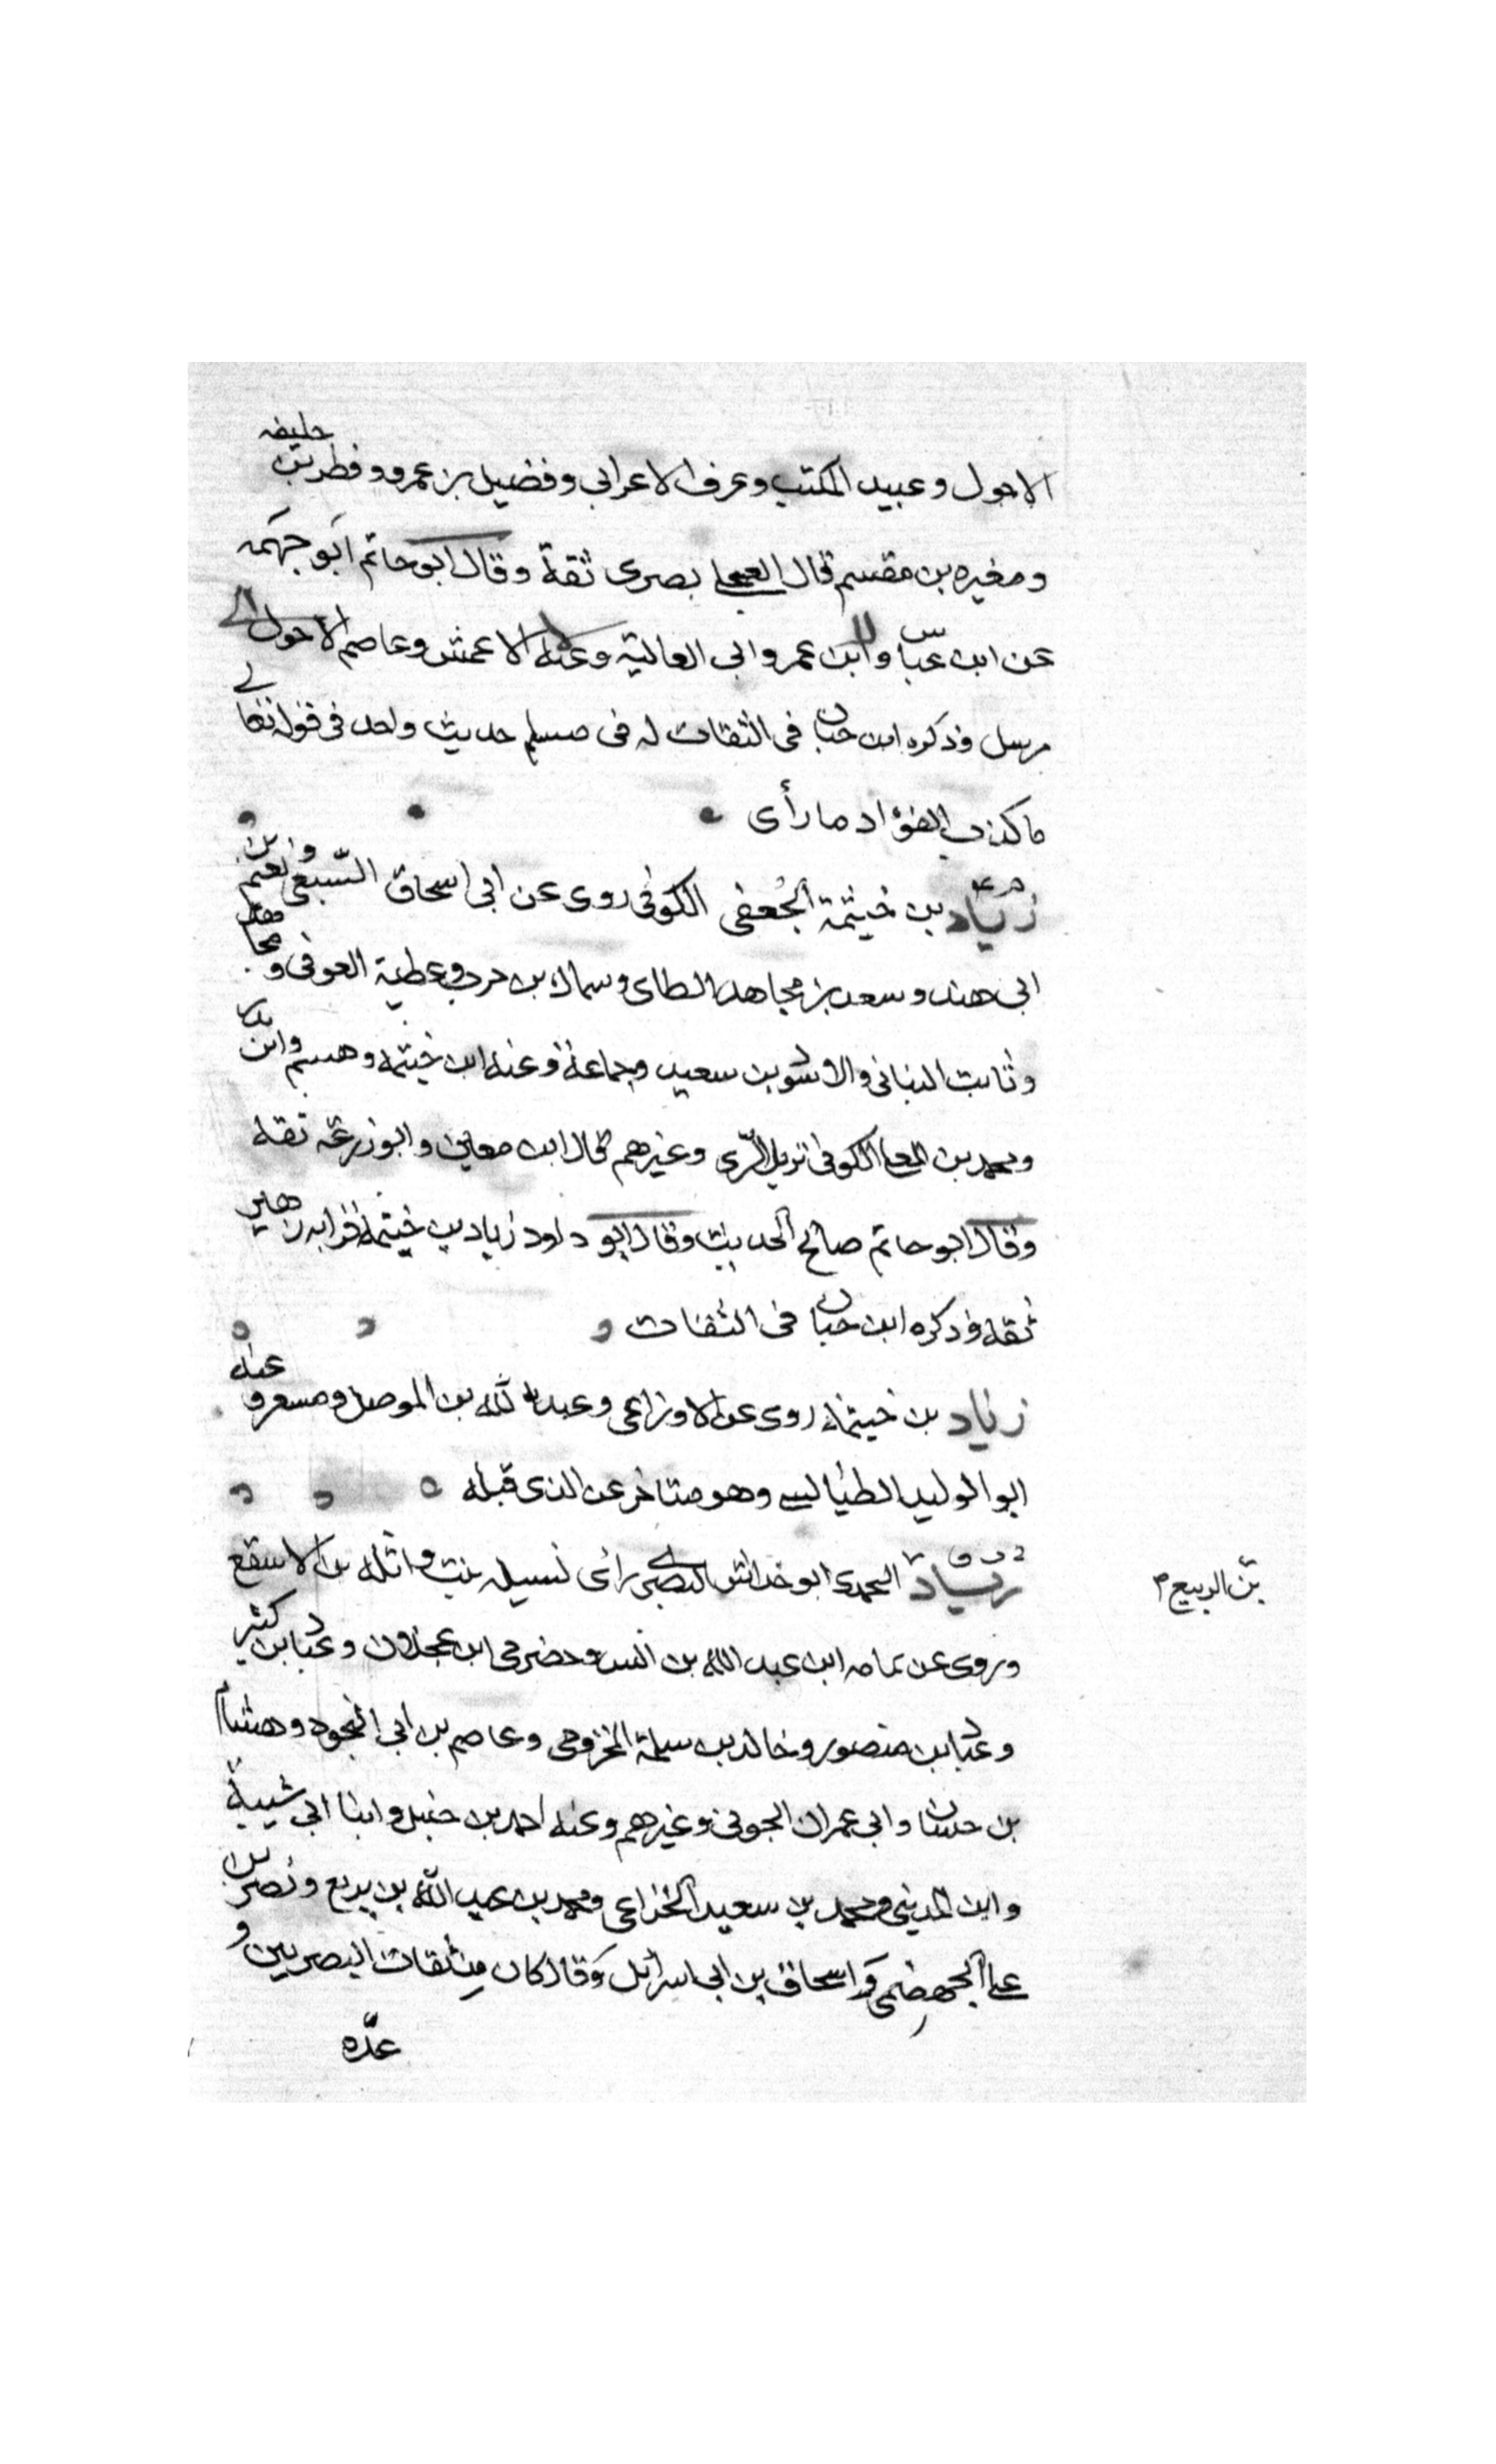 الاحول وعبيد المكتب وعوف الاعرابي وفضيل بن عمرو وفطر بن خليفه
ومغيره بن مقسم قال العجلي بصرى ثقة وقال ابو حاتم ابو جهمه
عن ابن عباس وابن عمر وابى العالية وعنه الاعمش وعاصم الاحول
مرسل وذكره ابن حبان فى الثقات له فى مسلم حديث واحد فى قوله تعالى
ما كذب الفؤاد ما رأى
زياد بن خيثمة الجُعفى الكوفى روى عن ابى اسحاق السّبيعى ونعيم بن
ابى هند وسعد بن مجاهد الطاى وسماك بن حرب وعطية العوفى ومجاهد
وثابت البنانى والاسود بن سعيد وجماعة وعنه ابن خيثمه وهشيم وابن
ومحمد بن المعلى الكوفى نزيل الرّى وغيرهم قال ابن معين وابو زرعة ثقه
وقال ابو حاتم صالح الحديث وقال ابو داود زياد بن خيثمة قرابه زهير
ثقه وذكره ابن حبان فى الثقات
زياد بن خيثمة روى عن الاوزاعى وعبد الله بن الموصل ومسعر وعنه
ابو الوليد الطيالسي وهو متاخر عن الذى قبله
زياد اليحمدى ابو خداش البصرى رأى نسيله بنت واثله بن الاسقع
بن الربيع
وروى عن ثمامه ابن عبد الله بن انس وحضرمى ابن عجلان وعباد بن كثير
وعباد بن منصور وخالد بن سلمة المخزومى وعاصم بن ابى النجود وهشام
بن حسان وابى عمران الجونى وغيرهم وعنه احمد بن حنبل وابنا ابى شيبة
وابن المدينى ومحمد بن سعيد الخزاعى ومحمد بن عبد الله بن بزيع ونصر بن
على الجهضمى واسحاق بن ابى اسرائل وقال كان من ثقات البصريين و
عدّه